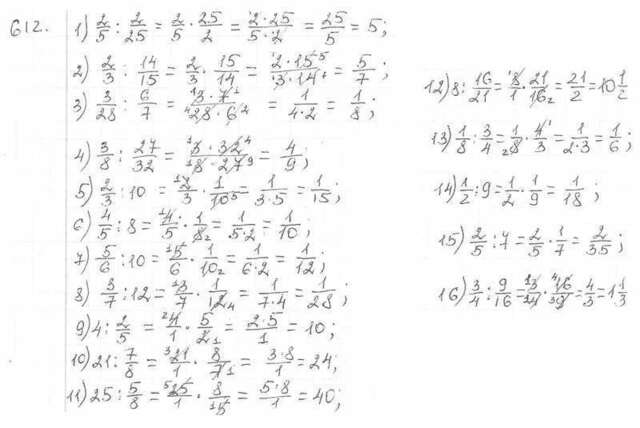 612.
1) 2/5 : 2/25 = 2/5 · 25/2 = 2·25/5·2 = 25/5 = 5;
2) 2/3 : 14/15 = 2/3 · 15/14 = 2·15/3·14 = 5/7;
3) 3/28 : 6/7 = 3·7/28·6 = 1/4·2 = 1/8;
4) 3/8 : 27/32 = 3·32/8·27 = 4/9;
5) 2/3 : 10 = 2/3 · 1/10 = 1/3·5 = 1/15;
6) 4/5 : 8 = 4/5 · 1/8 = 1/5·2 = 1/10;
7) 5/6 : 10 = 5/6 · 1/10 = 1/6·2 = 1/12;
8) 3/7 : 12 = 3/7 · 1/12 = 1/7·4 = 1/28;
9) 4 : 2/5 = 4/1 · 5/2 = 2·5/1 = 10;
10) 21 : 7/8 = 21/1 · 8/7 = 3·8/1 = 24;
11) 25 : 5/8 = 25/1 · 8/5 = 5·8/1 = 40;
12) 8 : 16/21 = 8/1 · 21/16 = 21/2 = 10 1/2
13) 1/8 : 3/4 = 1/8 · 4/3 = 1/2·3 = 1/6;
14) 1/2 : 9 = 1/2 · 1/9 = 1/18;
15) 2/5 : 7 = 2/5 · 1/7 = 2/35;
16) 3/4 : 9/16 = 3/4 · 16/9 = 4/3 = 1 1/3